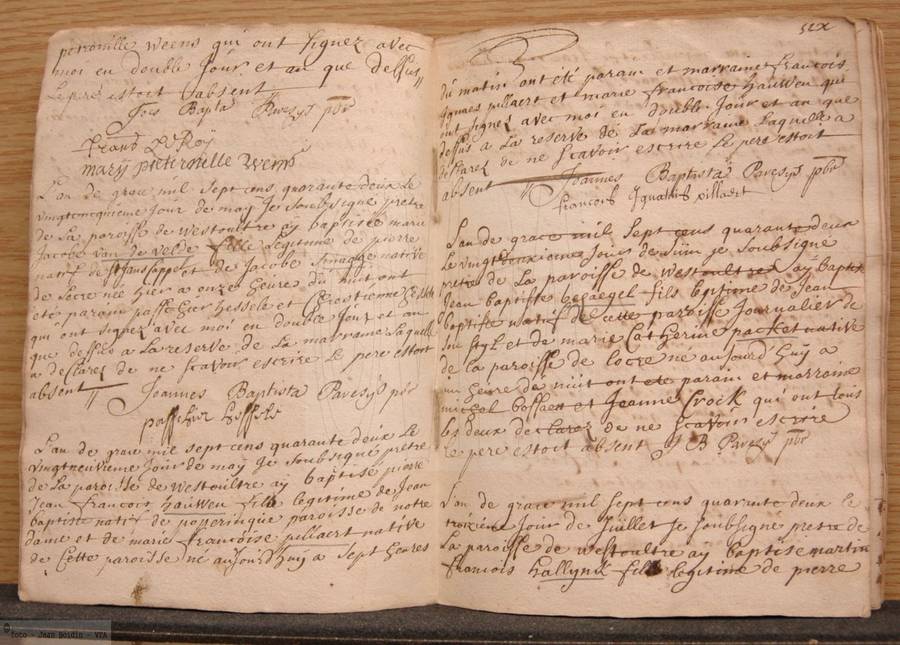 petronille weens qui ont signez avec
moi en double Jour et an que dessus
Le pere estoit absent
Jois Bapta Paresÿs pbr
Frans DeRoÿ
marÿ pieternelle Wens
L'an de grace mil sept cens quarante deux Le
vingtcincquieme Jour de maÿ Je soubsigne pretre
de La paroisse de Westoultre aÿ baptisé marie
Jacobe van de velde fille Legitime de pierre
natif de et de Jacobe native
de Locre née hier a onze heures du nuit ont
eté parain passchier hessele et
qui ont signez avec moi en double Jour et an
que dessus a La reserve de La marraine Laquelle
a declarez de ne scavoir escrire Le pere estoit
absent Joannes Baptista Paresÿs pbr
passchier
L'an de grace mil sept cens quarante deux Le
vingtneuvieme Jour de maÿ Je soubsigne pretre
de La paroisse de Westoultre aÿ baptisé pierre
Jean francois hauwen fils legitime de Jean
baptiste natif de poperingue paroisse de notre
dame et de marie francoise pillaert native
de Cette paroisse né auJourd'huÿ a sept heures
du matin ont été parain et marraine francois
Ignaes pillaert et marie francoise hauwen qui
ont signes avec moi en double Jour et an que
dessus a La reserve de La marraine Laquelle a
declarez de ne scavoir escrire Le pere estoit
absent Joannes Baptista Paresÿs pbr
francois Ignatius pillaert
L'an de grace mil sept cens quarante deux
Le vingt Jour de Juin Je soubsigne
pretre de La paroisse de Westoultre aÿ baptisé
Jean baptiste fils legitime de Jean
baptiste natif de cette paroisse Journalier de
son styl et de marie Catherine packet native
de la paroisse de locre né auJourd'huÿ a
un heure de nuit ont eté parain et marraine
michel bossaert et Jeanne Crock qui ont tous
les deux declarez de ne scavoir escrire
Le pere estoit absent J B Paresÿs pbr
L'an de grace mil sept cens quarante deux le
troizieme Jour de Juillet Je soubsigné pretre de
La paroisse de Westoultre aÿ baptisé martin
francois hallÿnck fils legitime de pierre
foto - Jean Boidin - VTA